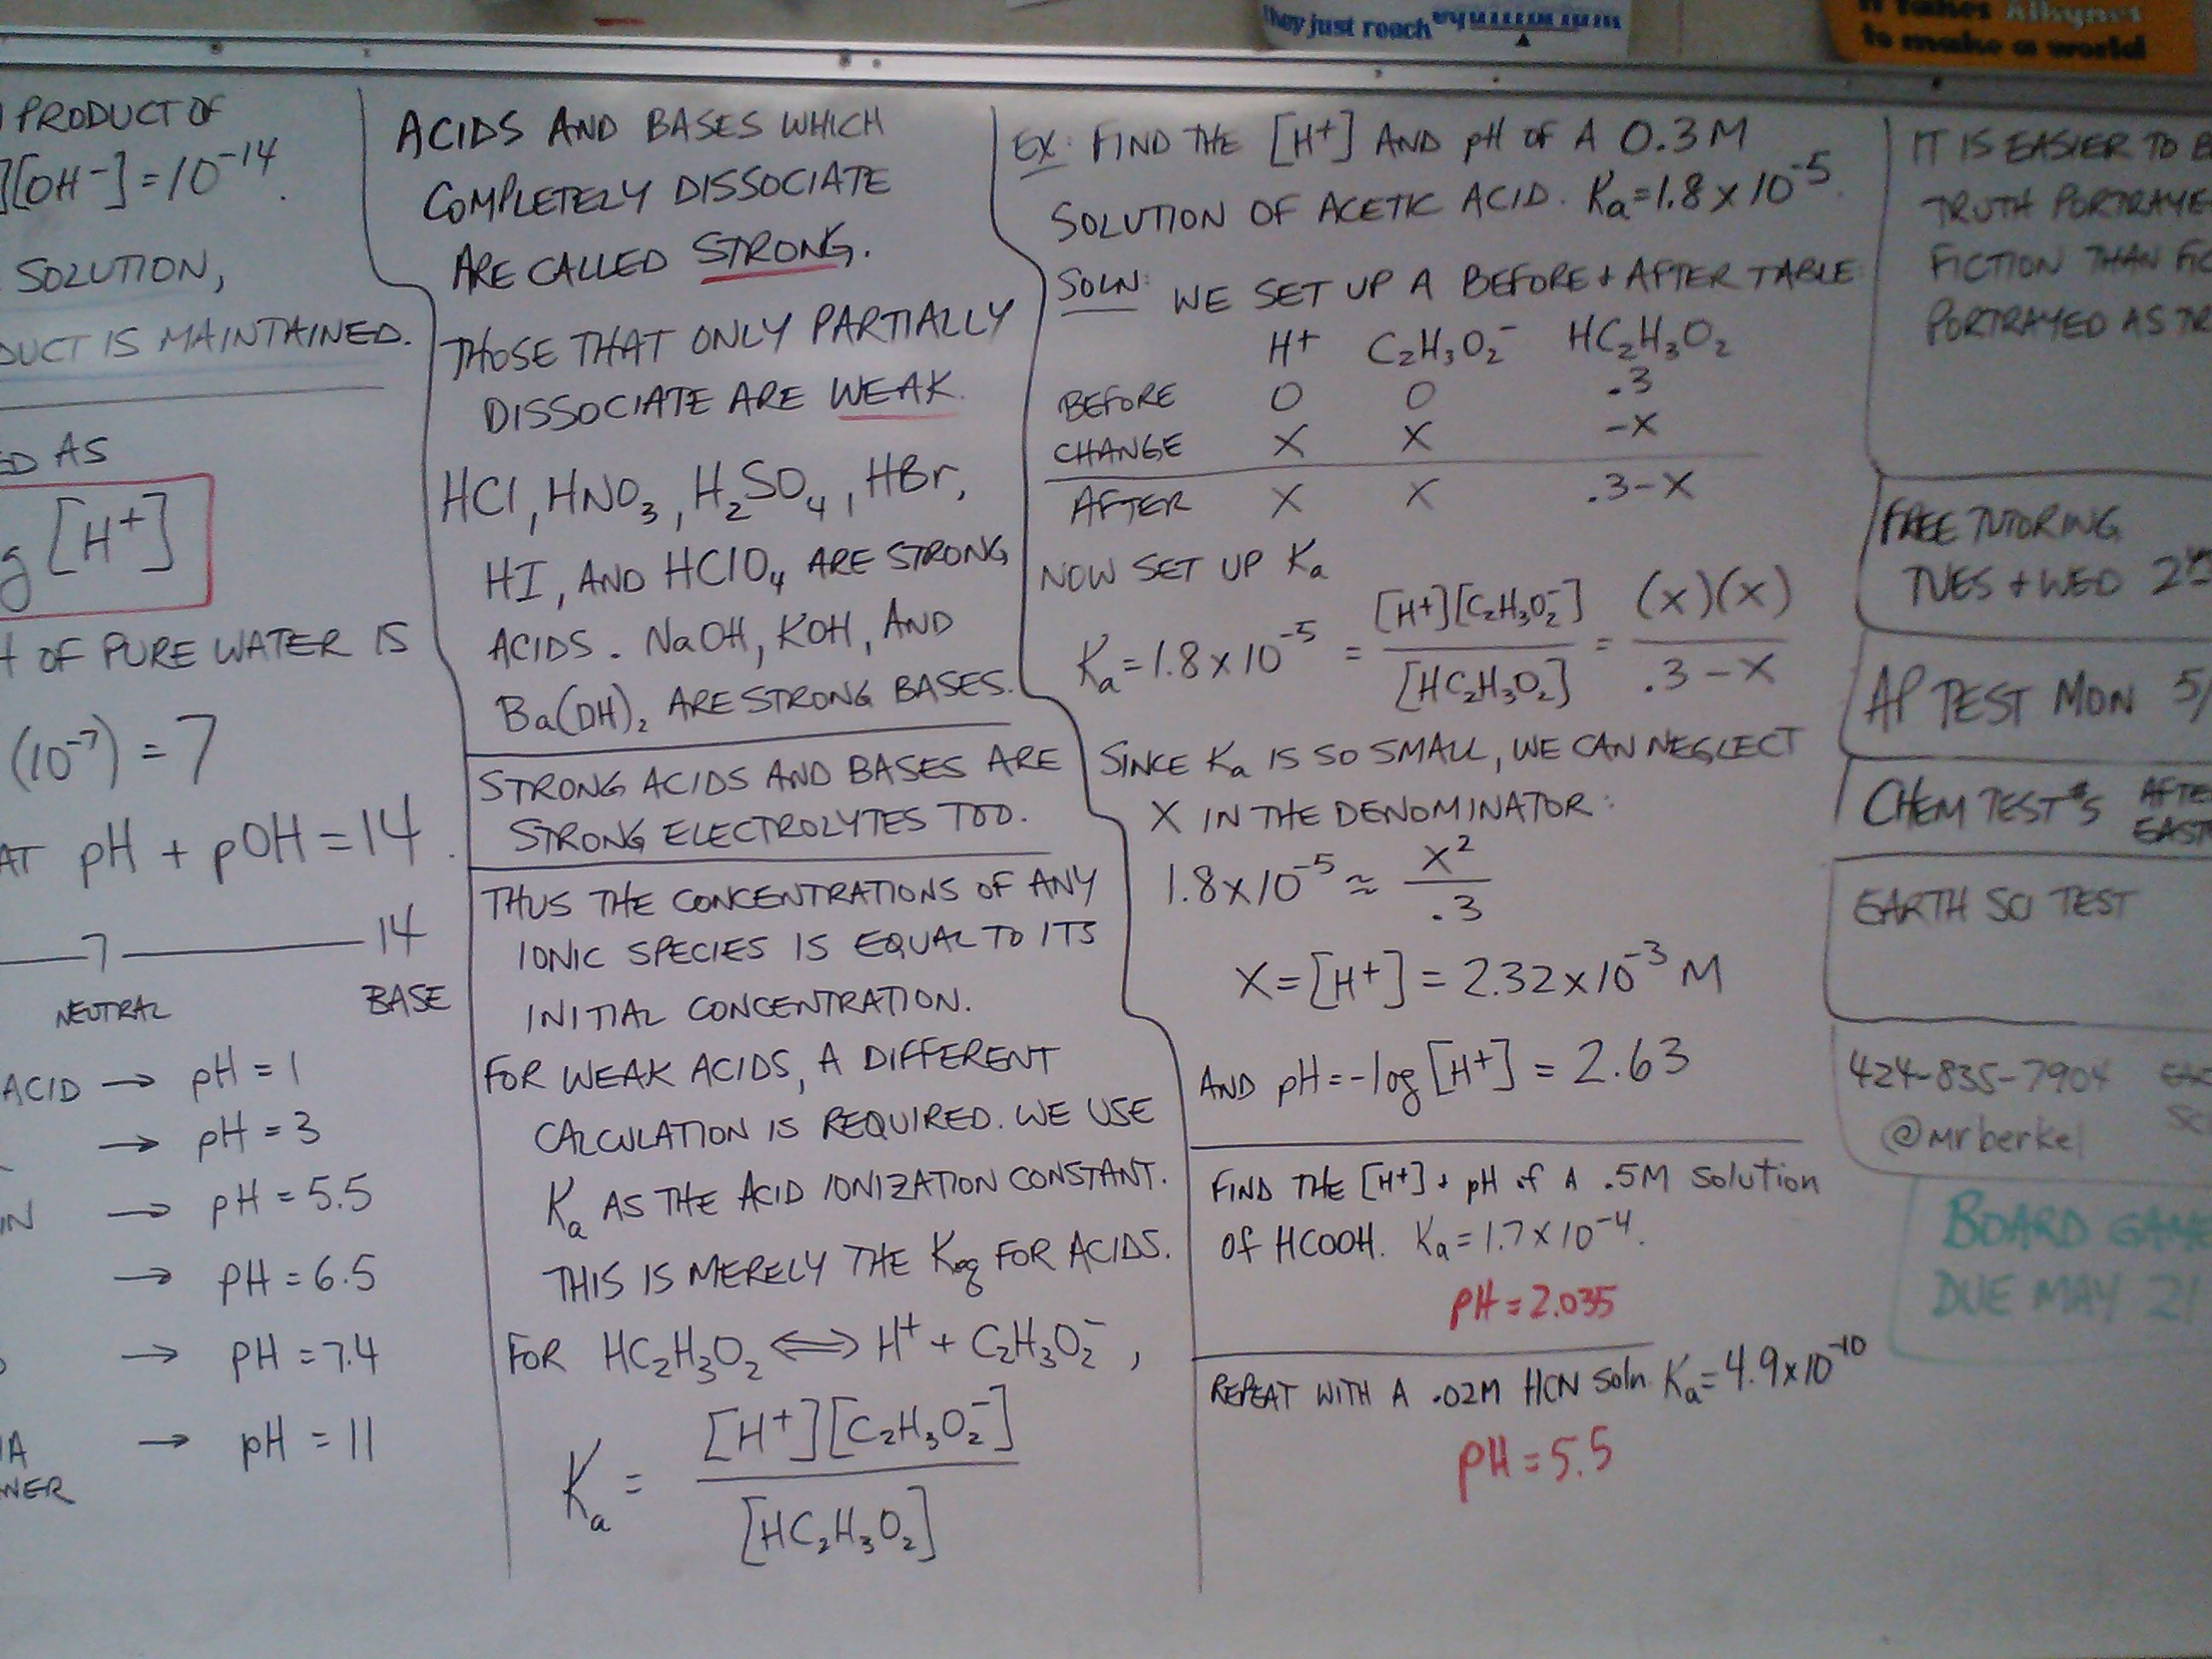 they just reach equilibrium
to make a world
PRODUCT OF
][OH⁻] = 10⁻¹⁴.
SOLUTION,
DUCT IS MAINTAINED.
ED AS
g [H⁺]
H OF PURE WATER IS
(10⁻⁷) = 7
AT pH + pOH = 14.
7 14
NEUTRAL BASE
ACID → pH = 1
→ pH = 3
IN → pH = 5.5
→ pH = 6.5
→ pH = 7.4
IA → pH = 11
NER
ACIDS AND BASES WHICH
COMPLETELY DISSOCIATE
ARE CALLED STRONG.
THOSE THAT ONLY PARTIALLY
DISSOCIATE ARE WEAK.
HCl, HNO₃, H₂SO₄, HBr,
HI, AND HClO₄ ARE STRONG
ACIDS. NaOH, KOH, AND
Ba(OH)₂ ARE STRONG BASES.
STRONG ACIDS AND BASES ARE
STRONG ELECTROLYTES TOO.
THUS THE CONCENTRATIONS OF ANY
IONIC SPECIES IS EQUAL TO ITS
INITIAL CONCENTRATION.
FOR WEAK ACIDS, A DIFFERENT
CALCULATION IS REQUIRED. WE USE
Kₐ AS THE ACID IONIZATION CONSTANT.
THIS IS MERELY THE Keq FOR ACIDS.
FOR HC₂H₃O₂ ⟺ H⁺ + C₂H₃O₂⁻,
Kₐ = [H⁺][C₂H₃O₂⁻] / [HC₂H₃O₂]
EX: FIND THE [H⁺] AND pH OF A 0.3M
SOLUTION OF ACETIC ACID. Kₐ = 1.8 x 10⁻⁵.
SOLN: WE SET UP A BEFORE + AFTER TABLE:
H⁺ C₂H₃O₂⁻ HC₂H₃O₂
BEFORE 0 0 .3
CHANGE X X -X
AFTER X X .3-X
NOW SET UP Kₐ
Kₐ = 1.8 x 10⁻⁵ = [H⁺][C₂H₃O₂⁻] / [HC₂H₃O₂] = (X)(X) / .3-X
SINCE Kₐ IS SO SMALL, WE CAN NEGLECT
X IN THE DENOMINATOR:
1.8 x 10⁻⁵ ≈ X² / .3
X = [H⁺] = 2.32 x 10⁻³ M
AND pH = -log [H⁺] = 2.63
FIND THE [H⁺] + pH of A .5M solution
of HCOOH. Kₐ = 1.7 x 10⁻⁴.
pH = 2.035
REPEAT WITH A .02M HCN soln. Kₐ = 4.9 x 10⁻¹⁰
pH = 5.5
IT IS EASIER TO
TRUTH PORTRAYE
FICTION THAN FIC
PORTRAYED AS TR
FREE TUTORING
TUES + WED
AP TEST MON 5/
CHEM TEST #5 AFTE
EAST
EARTH SCI TEST
424-835-7904
@mrberkel
BOARD GAME
DUE MAY 21